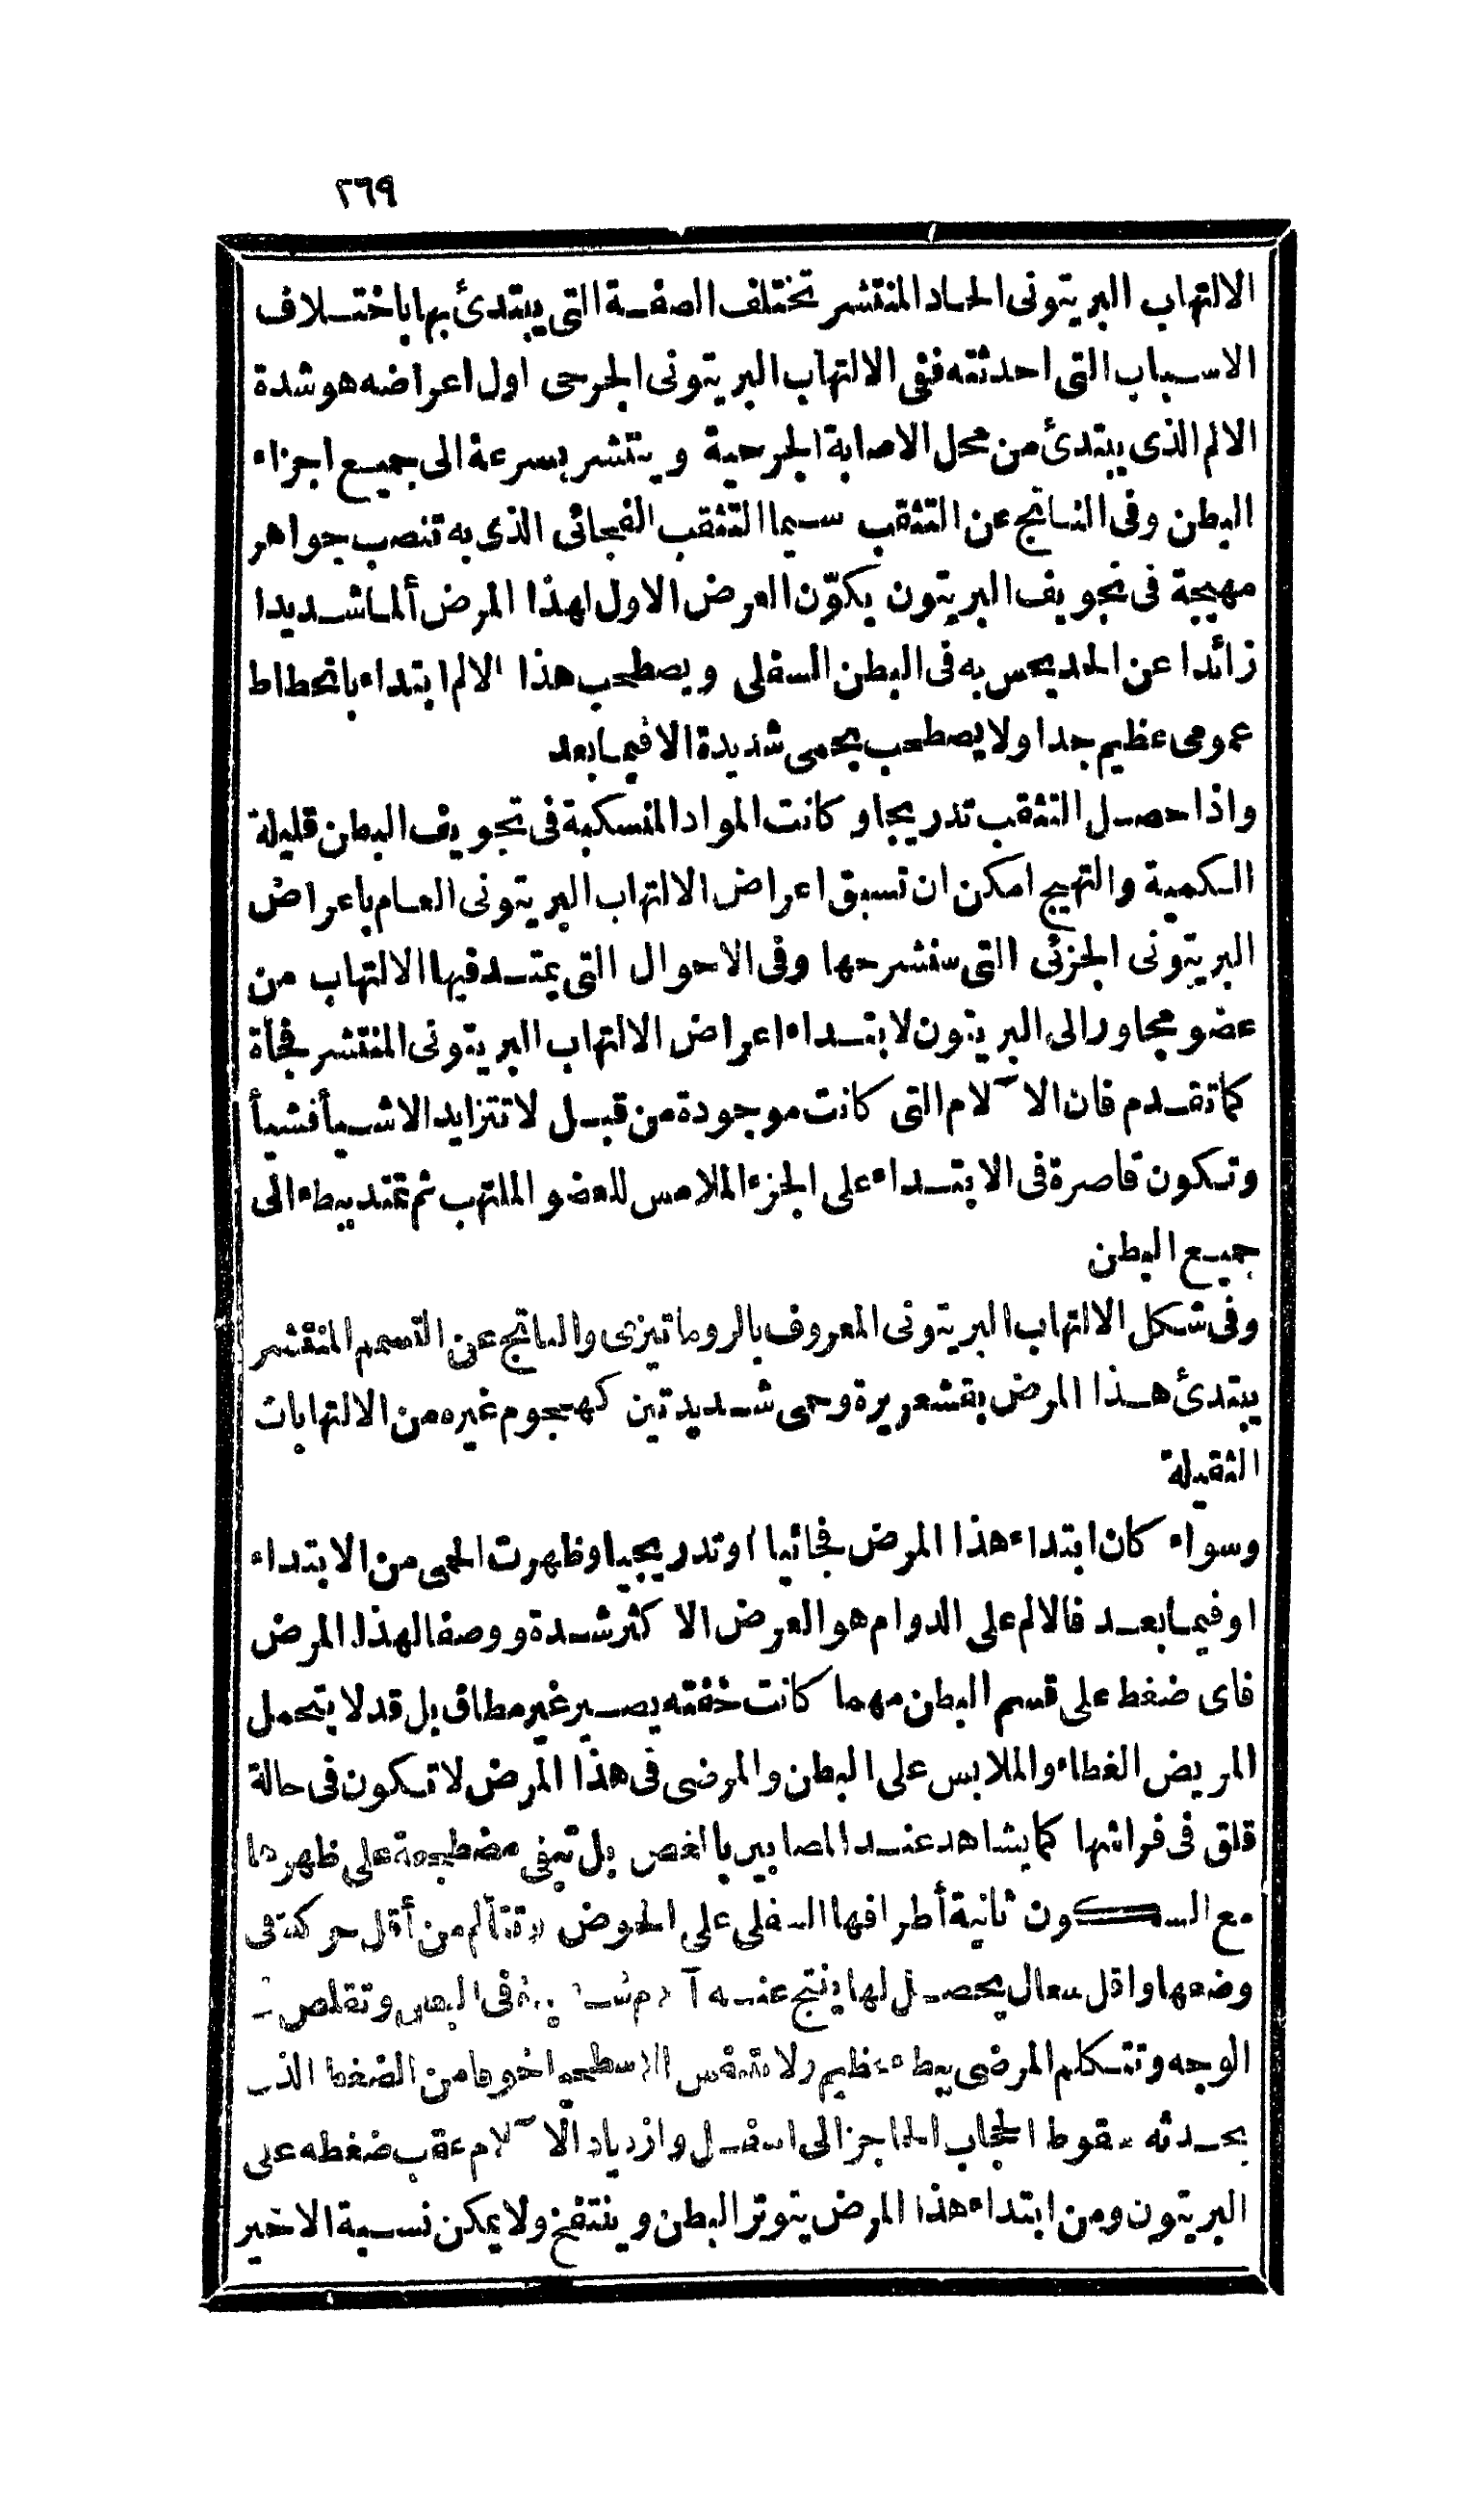 ٢٦٩
الالتهاب البريتونى الحاد المنتشر تختلف الصفة التى يبتدئ بها باختلاف
الاسباب التى احدثته ففى الالتهاب البريتونى الجرحى اول اعراضه هو شدة
الالم الذى يبتدئ من محل الاصابة الجرحية وينتشر بسرعة الى جميع اجزاء
البطن وفى الناتج عن التثقب سيما التثقب الفجائى الذى به تنصب جواهر
مهيجة فى تجويف البريتون يكوّن العرض الاول لهذا المرض ألما شديدا
زائدا عن الحد يحس به فى البطن السفلى ويصطحب هذا الالم ابتداء بانحطاط
عمومى عظيم جدا ولا يصطحب بحمى شديدة الا فيما بعد
واذا حصل التثقب تدريجا وكانت المواد المنسكبة فى تجويف البطن قليلة
الكمية والتهيج امكن ان تسبق اعراض الالتهاب البريتونى العام باعراض
البريتونى الجزئى التى سنشرحها وفى الاحوال التى يمتد فيها الالتهاب من
عضو مجاور الى البريتون لا بتداء اعراض الالتهاب البريتونى المنتشر فجأة
كما تقدم فان الآلام التى كانت موجودة من قبل لا تتزايد الا شيأ فشيأ
وتكون قاصرة فى الابتداء على الجزء الملامس للعضو الملتهب ثم تمتد ببطء الى
جميع البطن
وفى شكل الالتهاب البريتونى المعروف بالروماتيزى والناتج عن التسمم المنتشر
يبتدئ هذا المرض بقشعريرة وحمى شديدتين كهجوم غيره من الالتهابات
الثقيلة
وسواء كان ابتداء هذا المرض فجائيا او تدريجيا وظهرت الحمى من الابتداء
او فيما بعد فالالم على الدوام هو العرض الاكثر شدة ووصفا لهذا المرض
فاى ضغط على قسم البطن مهما كانت خفته يصير غير مطاق بل قد لا يتحمل
المريض الغطاء والملابس على البطن والمرضى فى هذا المرض لا تكون فى حالة
قلق فى فراشها كما يشاهد عند المصابين بالمغص بل تبقى مضطجعة على ظهرها
مع السكون ثانية أطرافها السفلى على الحوض وتتألم من أقل حركة فى
وضعها واقل سعال يحصل لها ينتج عنه فى البطن وتقلص
الوجه وتتكلم المرضى ببطء عظيم ولا تتنفس الا سطحيا خوفا من الضغط الذى
يحدثه سقوط الحجاب الحاجز الى اسفل وازدياد الآلام عقب ضغطه على
البريتون ومن ابتداء هذا المرض يتوتر البطن وينتفخ ولا يمكن نسبة الاخير